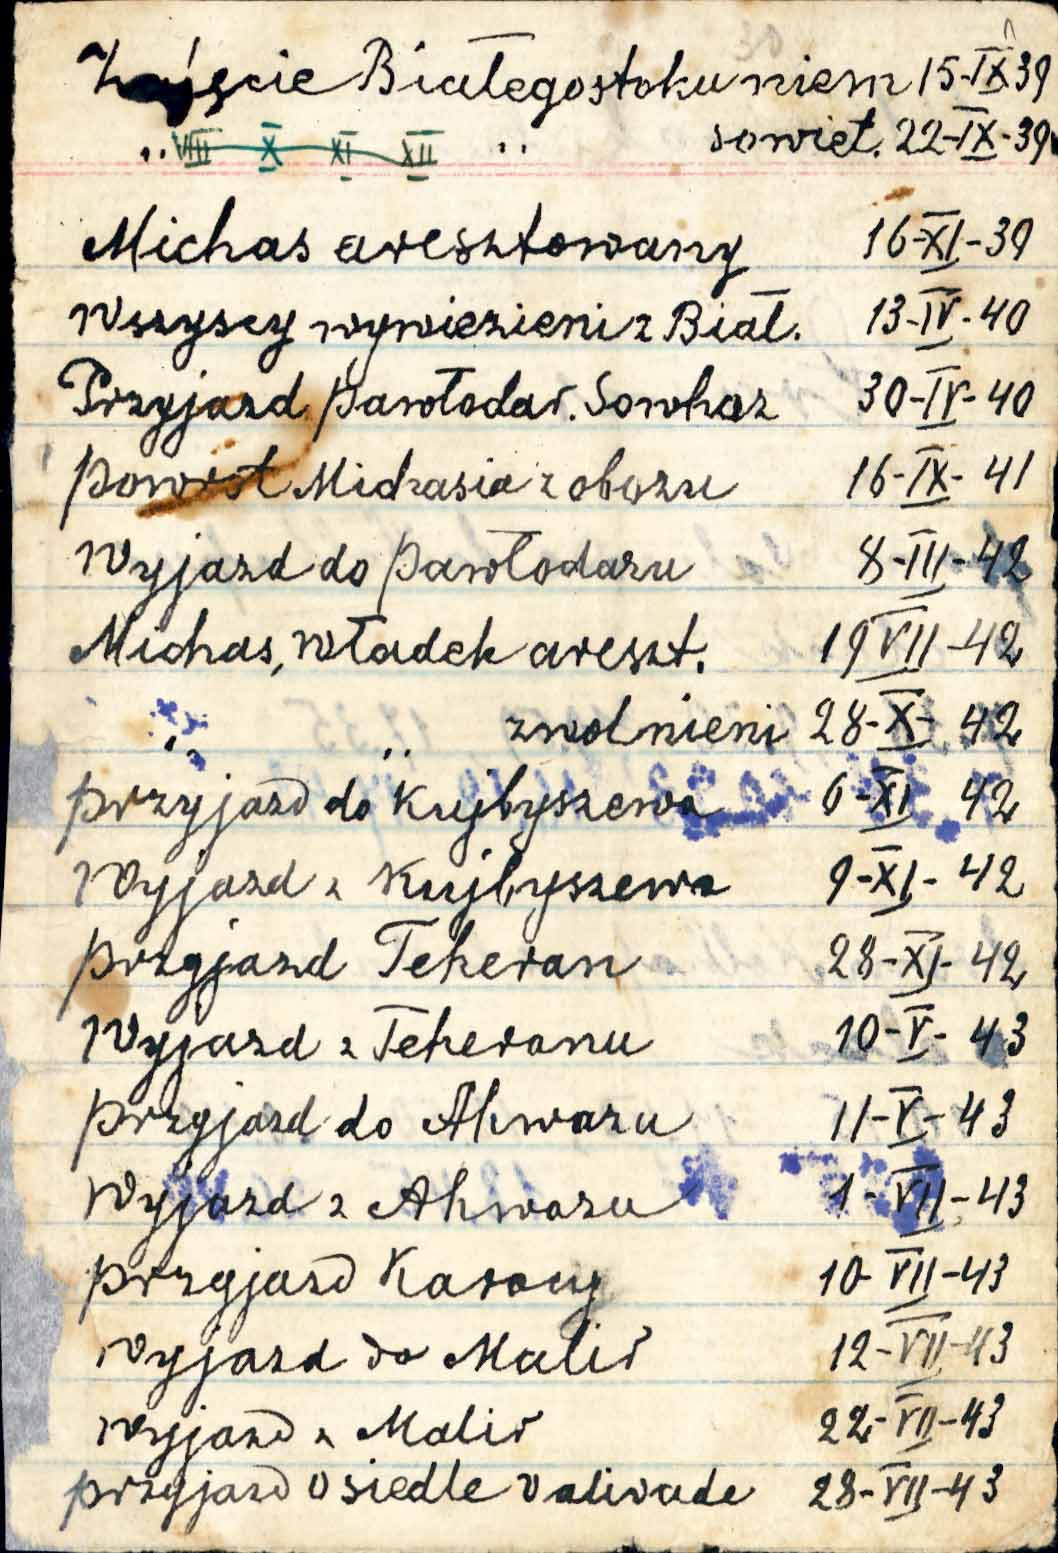 Zajęcie Białegostoku niem 15-IX 39
" VIII X XI XII " sowiet. 22-IX-39
Michas aresztowany 16-XI-39
Wszyscy wywiezieni z Biał. 13-IV-40
Przyjazd Pawłodar. Sowhoz 30-IV-40
powrót Michasia z obozu 16-IX-41
Wyjazd do Pawłodaru 8-III-42
Michas, Władek areszt. 19 VII-42
" " zwolnieni 28-X-42
przyjazd do Kujbyszewa 6-XI 42
Wyjazd z Kujbyszewa 9-XI-42
przyjazd Teheran 28-XI-42
Wyjazd z Teheranu 10-V-43
przyjazd do Ahwazu 11-V-43
Wyjazd z Ahwazu 1-VII-43
przyjazd Karaczy 10-VII-43
wyjazd do Malir 12-VII-43
Wyjazd z Malir 22-VII-43
przyjazd Osiedle Valivade 28-VII-43